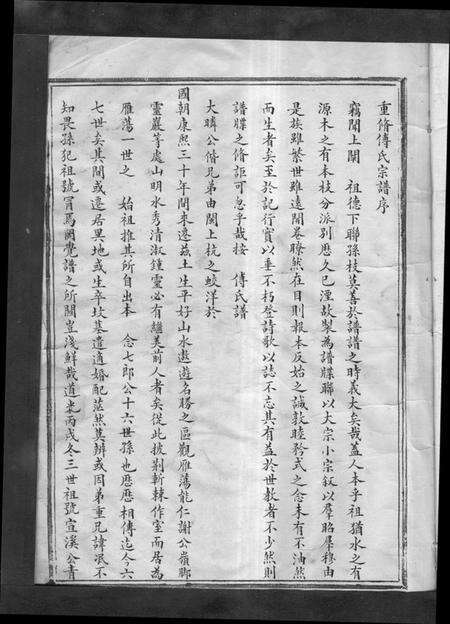 重脩傅氏宗譜序
竊聞上闡　祖德下聯孫枝莫善於譜譜之時義大矣哉蓋人本乎祖猶水之有
源木之有本枝分派別歷久已湮故製為譜牒聯以大宗小宗叙以羣昭羣穆由
是族雖繁世雖遠開卷瞭然在目則報本反始之誠敦睦矜式之念未有不油然
而生者矣至於記行實以垂不朽登詩歌以誌不忘其有益於世教者不少然則
譜牒之脩詎可忽乎哉按　傅氏譜
大疄公偕兄弟由閩上杭之蛟洋於
國朝康熙三十年間來遷兹土生平好山水遨遊名勝之區觀雁蕩能仁謝公嶺腳
靈巖等處山明水秀清淑鍾靈必有繼美前人者矣從此披荆斬棘作室而居為
雁蕩一世之　始祖推其所自出本　念七郎公十六世孫也歷歷相傳迄今六
七世矣其間或遷居異地或生卒坟墓遺適婚配茫然莫辨或因弟重兄諱派不
知畏孫犯祖號冒焉罔覺譜之所關豈淺鮮哉道光丙戌冬三世祖號宣溪公青